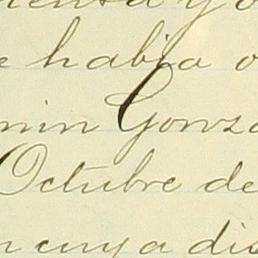 y
e habia
min Gonza
Octubre de
n cuya dis